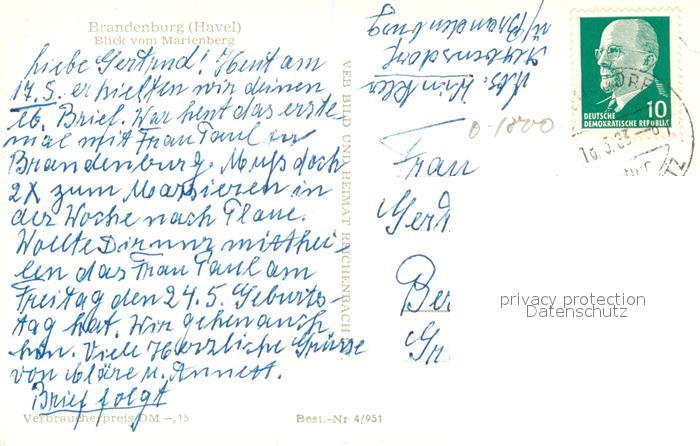 Brandenburg (Havel)
Blick vom Marienberg
Liebe Gertrud! Heut am
17.5. erhielten wir deinen
lb. Brief. War heut das erste
mal mit Frau Paul in
Brandenburg. Muß doch
2X zum Massieren in
der Woche nach Plaue.
Wollte Dir nur mitthei-
len das Frau Paul am
Freitag den 24.5. Geburts-
tag hat. Wir gehen auch
hin. Viele Herzliche Grüsse
von Kläre u. Annett.
Brief folgt
Verbraucherpreis DM -,15
Best.-Nr 4/951
VEB BILD UND HEIMAT REICHENBACH
Abs. Winkler
ü/Brandenburg
0-1800
Frau
Gert
Ber
Gr
DEUTSCHE
DEMOKRATISCHE REPUBLIK
10
privacy protection
Datenschutz